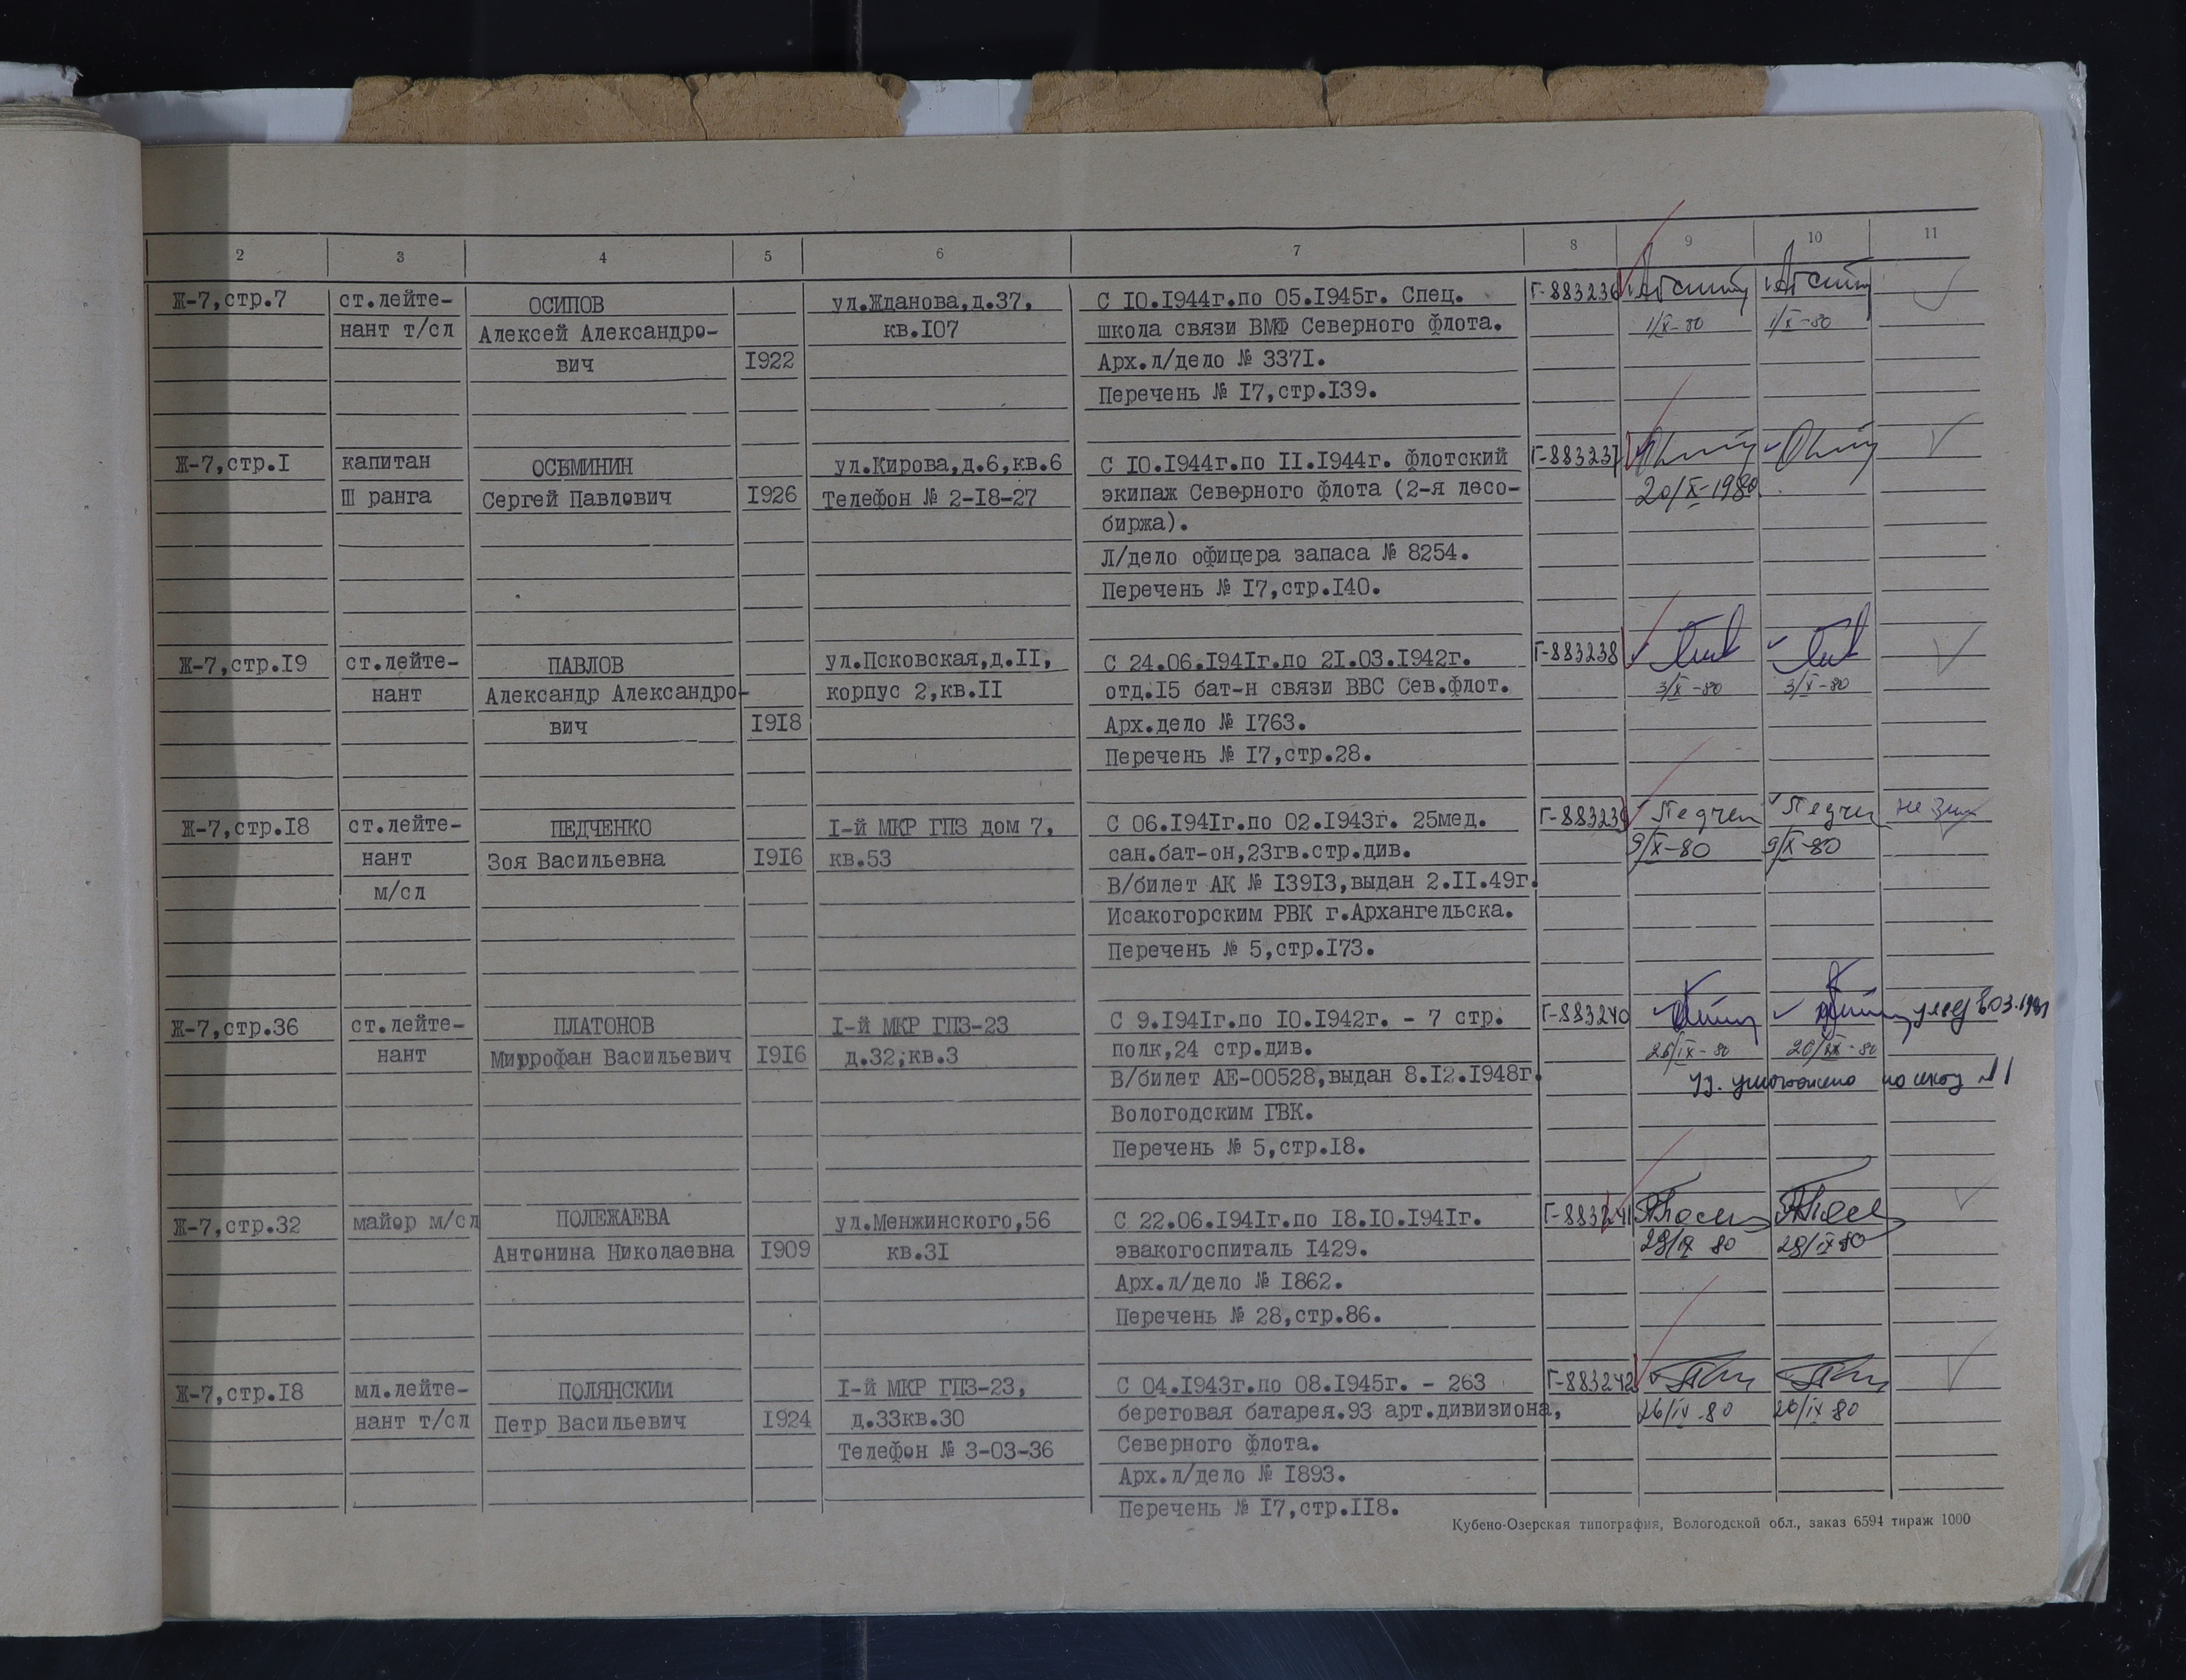 2 3 4 5 6 7 8 9 10 11
Ж-7,стр.7 ст.лейте- ОСИПОВ ул.Жданова,д.37, С IO.I944г.по 05.I945г. Спец. Г-883236
нант т/сл Алексей Александро- кв.I07 школа связи ВМФ Северного флота. 1/X-80 1/X-80
вич I922 Арх.л/дело № 337I.
Перечень № I7,стр.I39.
Ж-7,стр.I капитан ОСЬМИНИН ул.Кирова,д.6,кв.6 С IO.I944г.по II.I944г. флотский Г-883237
Ш ранга Сергей Павлович I926 Телефон № 2-I8-27 экипаж Северного флота (2-я лесо- 20/X-1980
биржа).
Л/дело офицера запаса № 8254.
Перечень № I7,стр.I40.
Ж-7,стр.I9 ст.лейте- ПАВЛОВ ул.Псковская,д.II, С 24.06.I94Iг.по 2I.03.I942г. Г-883238
нант Александр Александро- корпус 2,кв.II отд.I5 бат-н связи ВВС Сев.флот. 3/X-80 3/X-80
вич I9I8 Арх.дело № I763.
Перечень № I7,стр.28.
Ж-7,стр.I8 ст.лейте- ПЕДЧЕНКО I-й МКР ГПЗ дом 7, С 06.I94Iг.по 02.I943г. 25мед. Г-883239 Педчен Педчен
нант Зоя Васильевна I9I6 кв.53 сан.бат-он,23гв.стр.див. 9/X-80 9/X-80
м/сл В/билет АК № I39I3,выдан 2.II.49г.
Исакогорским РВК г.Архангельска.
Перечень № 5,стр.I73.
Ж-7,стр.36 ст.лейте- ПЛАТОНОВ I-й МКР ГПЗ-23 С 9.I94Iг.по IO.I942г. - 7 стр. Г-883240
нант Миррофан Васильевич I9I6 д.32;кв.3 полк,24 стр.див. 26/IX-80 26/IX-80
В/билет АЕ-00528,выдан 8.I2.I948г. уд. уничтожено по акту №1
Вологодским ГВК.
Перечень № 5,стр.I8.
Ж-7,стр.32 майор м/сл ПОЛЕЖАЕВА ул.Менжинского,56 С 22.06.I94Iг.по I8.IO.I94Iг. Г-883241
Антонина Николаевна I909 кв.3I эвакогоспиталь I429. 29/IX 80 29/IX 80
Арх.л/дело № I862.
Перечень № 28,стр.86.
Ж-7,стр.I8 мл.лейте- ПОЛЯНСКИИ I-й МКР ГПЗ-23, С 04.I943г.по 08.I945г. - 263 Г-883242
нант т/сл Петр Васильевич I924 д.33кв.30 береговая батарея.93 арт.дивизиона, 26/IX-80 26/IX 80
Телефон № 3-03-36 Северного флота.
Арх.л/дело № I893.
Перечень № I7,стр.II8.
Кубено-Озерская типография, Вологодской обл., заказ 6594 тираж 1000